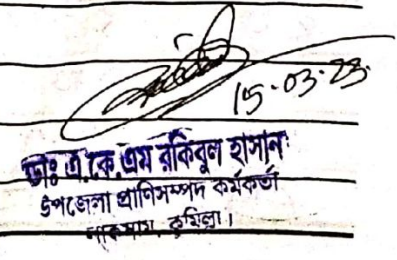 15.03.23.
ডাঃ এ.কে.এম রকিবুল হাসান
উপজেলা প্রাণিসম্পদ কর্মকর্তা
লাকসাম, কুমিল্লা।